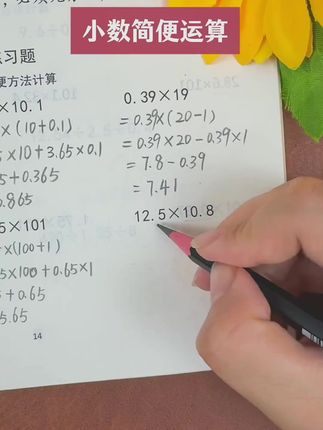 小数简便运算
习题
便方法计算
×10.1
×(10+0.1)
5×10+3.65×0.1
5+0.365
.865
5×101
×(100+1)
5×100+0.65×1
5+0.65
5.65
0.39×19
=0.39×(20-1)
=0.39×20-0.39×1
=7.8-0.39
=7.41
12.5×10.8
14